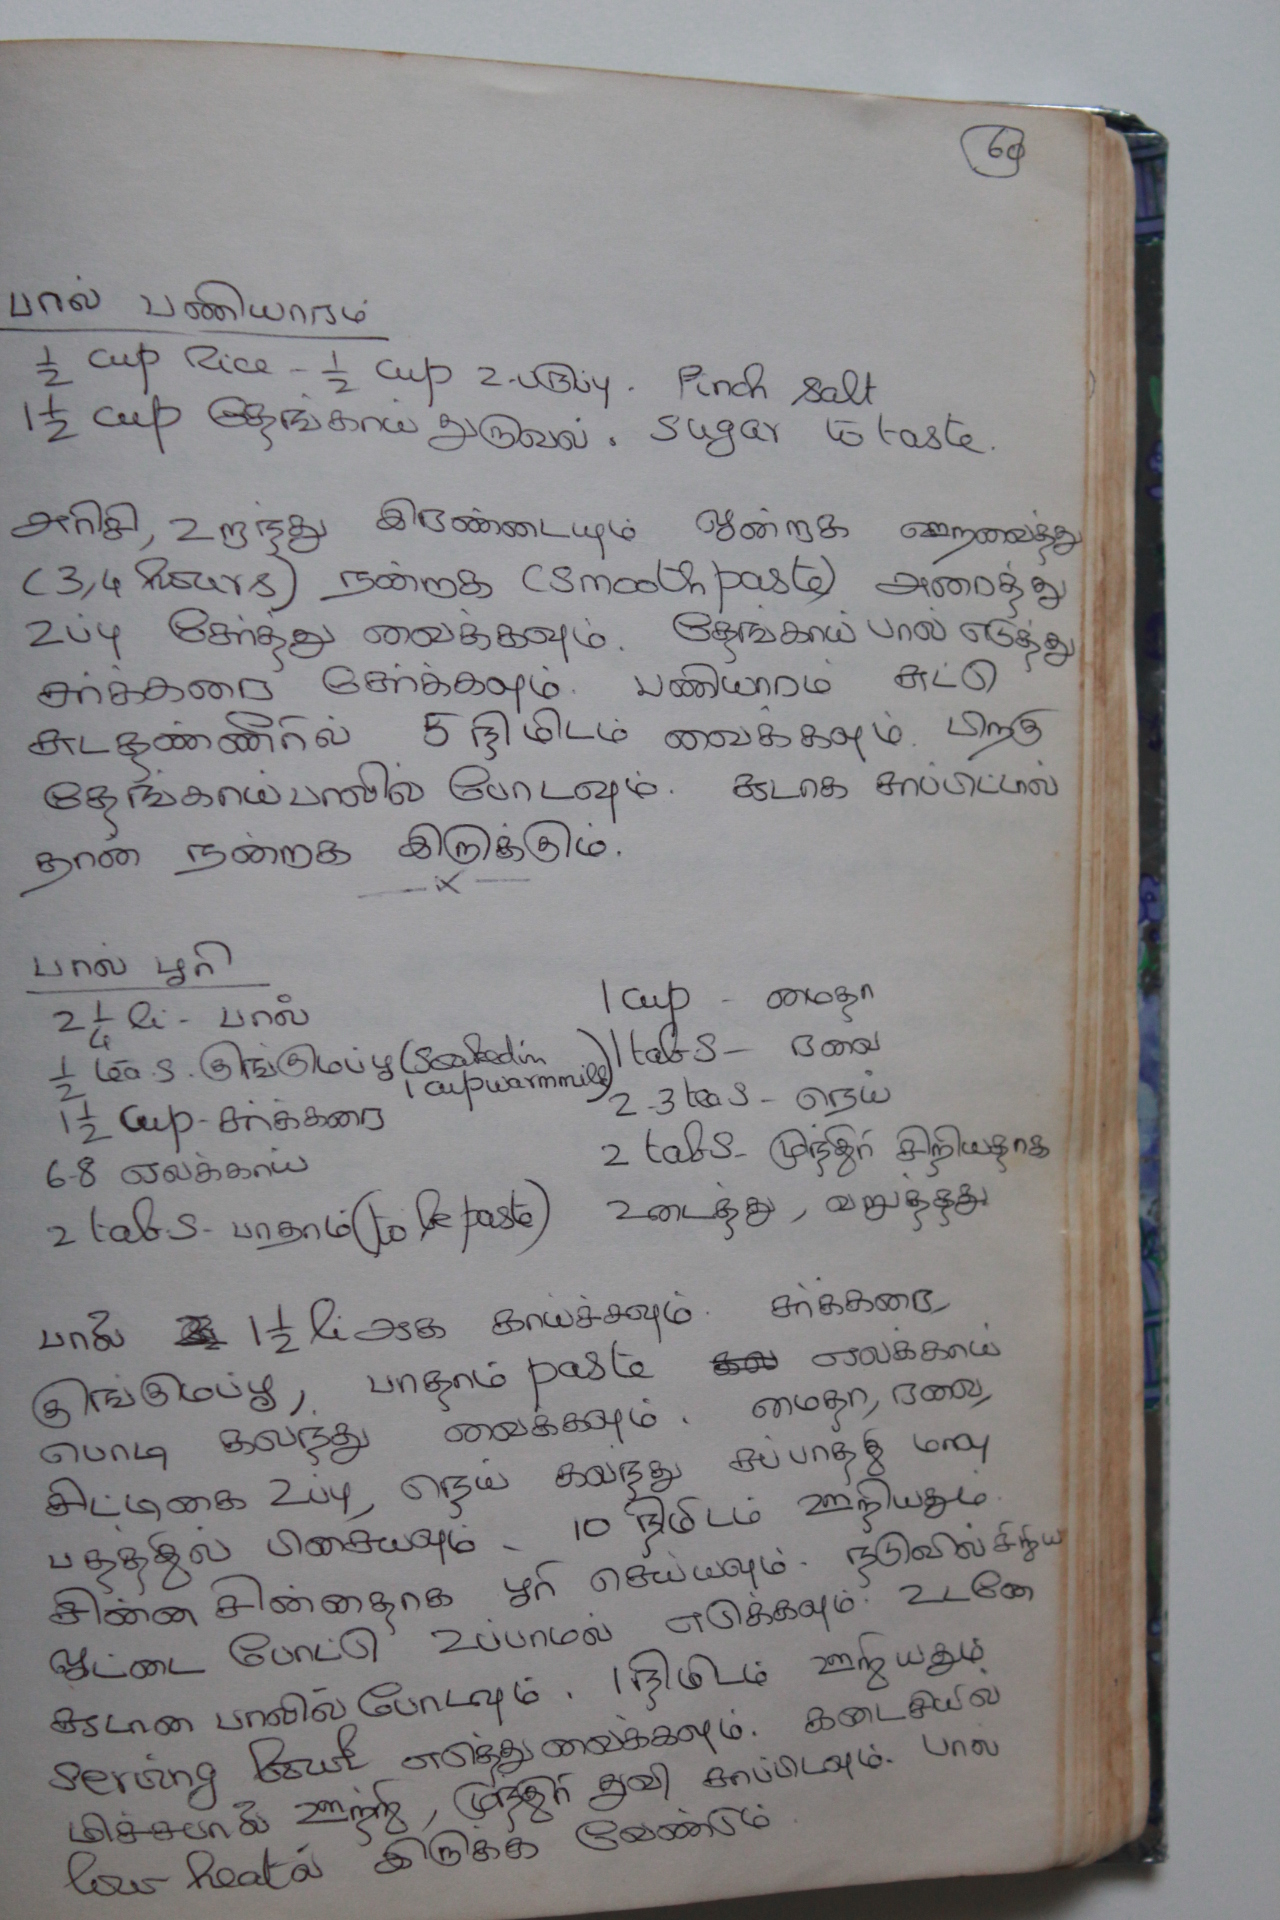 60
பால் பணியாரம்
1/2 cup Rice - 1/2 cup உ.பருப்பு. Pinch salt
1 1/2 cup தேங்காய் துருவல். Sugar to taste.
அரிசி, உளுந்து இரண்டையும் ஒன்றாக ஊறவைத்து
(3,4 hours) நன்றாக (Smooth paste) அரைத்து
உப்பு சேர்த்து வைக்கவும். தேங்காய் பால் எடுத்து
சர்க்கரை சேர்க்கவும். பணியாரம் சுட்டு
சுடதண்ணீரில் 5 நிமிடம் வைக்கவும். பிறகு
தேங்காய் பாலில் போடவும். சூடாக சாப்பிட்டால்
தான் நன்றாக இருக்கும்.
—x—
பால் பூரி
2 1/4 li - பால்
1/2 tea.s. குங்குமப்பூ (Soaked in
1 cup warm milk)
1 1/2 cup - சர்க்கரை
6-8 ஏலக்காய்
2 tab.s - பாதாம் (to be paste)
1 cup - மைதா
1 tab.s - ரவை
2-3 tea.s - நெய்
2 tab.s - முந்திரி சிறியதாக
உடைத்து, வறுத்தது
பால் 1 1/2 li ஆக காய்ச்சவும். சர்க்கரை,
குங்குமப்பூ, பாதாம் paste ஏலக்காய்
பொடி கலந்து வைக்கவும். மைதா, ரவை,
சிட்டிகை உப்பு, நெய் கலந்து சப்பாத்தி மாவு
பதத்தில் பிசையவும். 10 நிமிடம் ஊறியதும்
சின்ன சின்னதாக பூரி செய்யவும். நடுவில் சிறிய
ஓட்டை போட்டு உப்பாமல் எடுக்கவும். உடனே
சூடான பாலில் போடவும். 1 நிமிடம் ஊறியதும்
serving bowl எடுத்து வைக்கவும். கடைசியில்
மிச்சபால் ஊற்றி, முந்திரி தூவி சாப்பிடவும். பால்
low heatல் இருக்க வேண்டும்